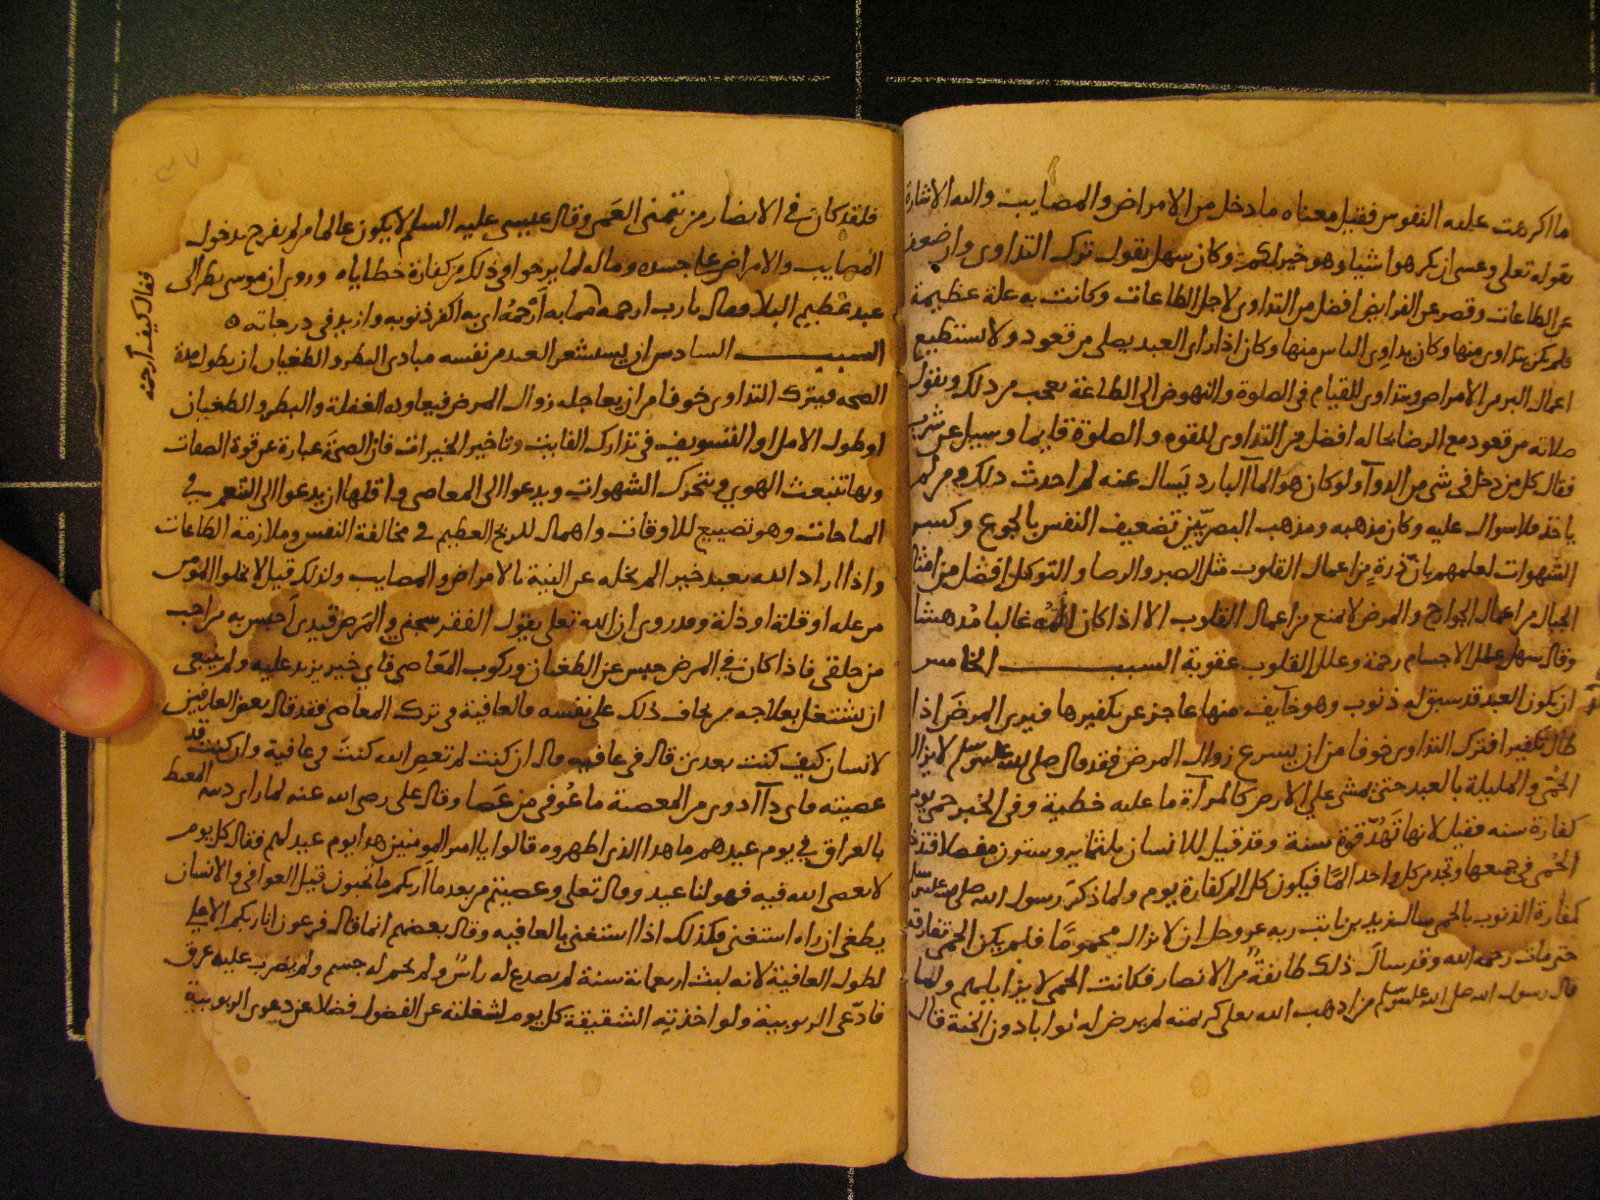 ما اكرهت عليه النفوس فقيل معناه ما دخل من الامراض والمصايب واليه الاشارة
بقوله تعلى وعسى ان تكرهوا شيا وهو خير لكم وكان سهل يقول ترك التداوى وان ضعف
عن الطاعات وقصر عن الفرايض افضل من التداوى لاجل الطاعات وكانت به علة عظيمة
فلم يكن يتداوى منها وكان يداوى الناس منها وكان اذا راى العبد يصلى من قعود ولا يستطيع
اعمال البر من الامراض ويتداوى للقيام فى الصلوة والنهوض الى الطاعة يعجب من ذلك ويقول
صلاته من قعود مع الرضا بحاله افضل من التداوى للقوه والصلوة قايما وسيل عن شرب
فقال كل من دخل فى شى من الدوآ ولو كان هو المآ البارد يسال عنه لم احدث ذلك ومن لم
ياخذ فلا سوال عليه وكان مذهبه ومذهب البصريين تضعيف النفس بالجوع وكسر
الشهوات لعلمهم بان ذرة من اعمال القلوب مثل الصبر والرضا والتوكل افضل من امثال
الجبال من اعمال الجوارح والمرض لا يمنع من اعمال القلوب الا اذا كان المه غالبا مدهشا
وقال سهل علل الاجسام رحمة وعلل القلوب عقوبة السبب الخامس
ان يكون العبد قد سبق له ذنوب وهو خآيف منها عاجز عن تكفيرها فيرى المرض اذا
طال تكفيرا فترك التداوى خوفا من ان يسرع زوال المرض فقد قال صلى الله عليه وسلم لا يزال
الحمى والمليلة بالعبد حتى يمشى على الارض كالمرآة ما عليه خطية وفى الخبر حمى يوم
كفارة سنه فقيل لانها تهد قوة سنة وقد قيل للانسان ثلثمايه وستون مفصلا فتدخل
الحمى فى جميعها وتجد من كل واحد المًا فيكون كل الم كفارة يوم ولما ذكر رسول الله صلى الله عليه وسلم
كفارة الذنوب بالحمى سال زيد بن ثابت ربه عز وجل ان لا يزال محمومًا فلم يكن الحمى تفارقه
حتى مات رحمه الله وقد سال ذلك طائفة من الانصار فكانت الحمى لا يزايلهم ولما
قال رسول الله صلى الله عليه وسلم من اذهب الله تعلى كريمته لم يرض له ثوابا دون الجنة قال
فلقد كان فى الانصار من يتمنى العمى وقال عيسى عليه السلم لا يكون عالما من لم يفرح بدخول
المصايب والامراض على جسده وماله لما يرجوا فى ذلك من كفارة خطاياه وروى ان موسى نظر الى
عبد عظيم البلا فقال يا رب ارحمه مما به ارحمهُ اى به اكفر ذنوبه وازيد فى درجاته ه
فقال كيف ارحمه
السبب السادس ان يستشعر العبد من نفسه مبادى البطر والطغيان ان يطول مدة
الصحه فيترك التداوى خوفا من ان يعاجله زوال المرض فيعاوده الغفلة والبطر والطغيان
او طول الامل او التسويف فى تدارك الفايت وتاخير الخيرات فان الصحة عبارة عن قوة الصفات
وبها تنبعث الهوى وتتحرك الشهوات ويدعوا الى المعاصى واقلها ان يدعوا الى التنعم فى
المباحات وهو تضييع للاوقات واهمال للربح العظيم فى مخالفة النفس وملازمة الطاعات
واذا اراد الله بعبد خير الم يخله عن التنبه بالامراض والمصايب ولذلك قيل لا يخلوا المومن
من عله او قلة او ذلة وقد روى ان الله تعلى يقول الفقر سجنى والمرض قيدى احبس به من احب
من خلقى فاذا كان فى المرض حبس عن الطغيان وركوب المعاصى فاى خير يزيد عليه ولم ينبغى
ان يشتغل بعلاجه من يخاف ذلك على نفسه فالعافية فى ترك المعاصى فقد قال بعض العارفين
لانسان كيف كنت بعدى قال فى عافيه قال ان كنت لم تعص الله كنت فى عافية وان كنت قد
عصيته فاى دآ ادوى من المعصية ما عُوفى من عصا وقال على رضى الله عنه لما راى زينه النبط
بالعراق فى يوم عيدهم ما هذا الذى اظهروه قالوا يا امير المومنين هذا يوم عيد لهم فقال كل يوم
لا نعصى الله فيه فهو لنا عيد وقال تعلى وعصيتم من بعد ما اريكم ما تحبون قيل العوافى والانسان
يطغى ان راه استغنى فكذلك اذا استغنى بالعافيه وقال بعضهم انما قال فرعون انا ربكم الاعلى
لطول العافية لانه لبث اربعمائة سنة لم يصدع له راسٌ ولم يحم له جسم ولم يضرب عليه عرق
فادعى الربوبية ولو اخذته الشقيقة كل يوم لشغلته عن الفضول فضلا عن دعوى الربوبية